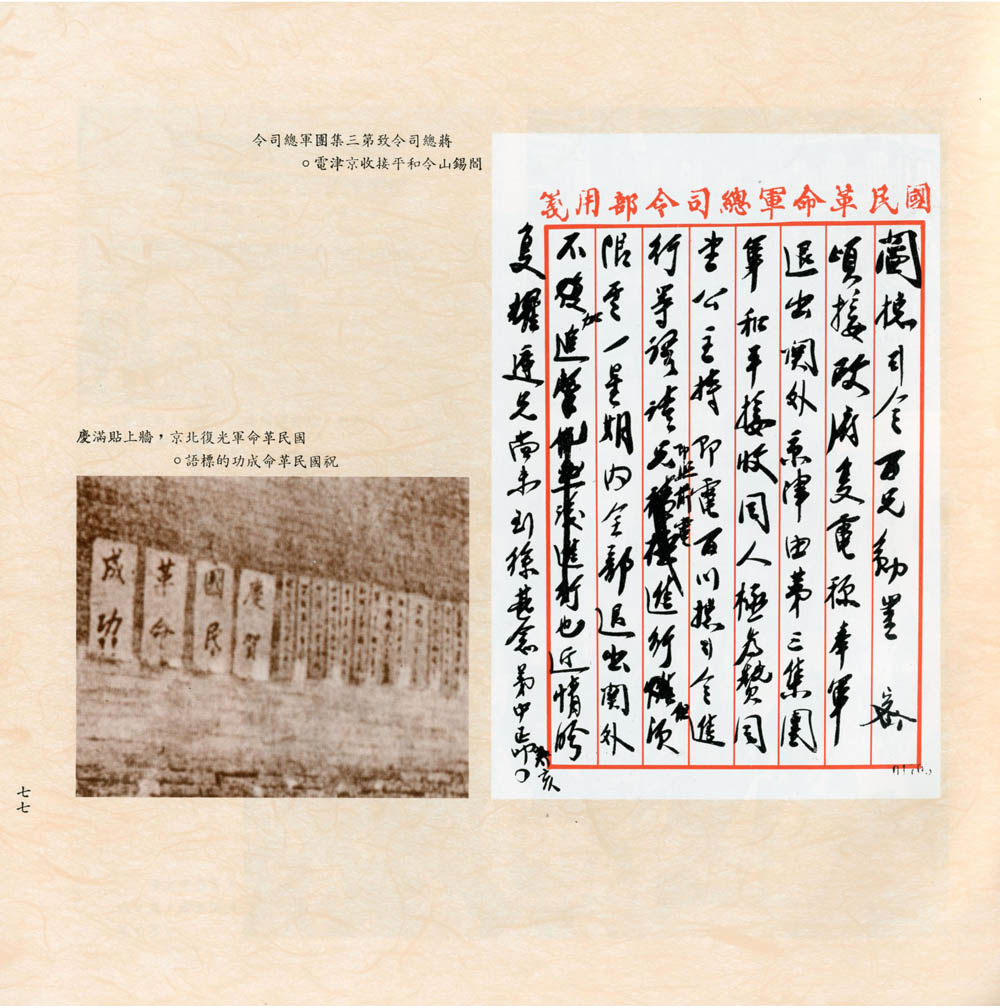 蔣總司令致第三集團軍總司令
閻錫山令和平接收京津電。
國民革命軍總司令部用箋
閻總司令百兄勛鑒 密
頃接政府覆電稱奉軍
退出關外京津由第三集團
軍和平接收同人極為贊同
公主持即電百川總司令進
行等語請兄即照前電進行 須
限 一星期內全部退出關外
不復加進擊 也近情盼
覆耀庭兄尚未到徐甚念弟中正叩 亥
國民革命軍光復北京，牆上貼滿慶
祝國民革命成功的標語。
慶賀
國民
革命
成功
七七